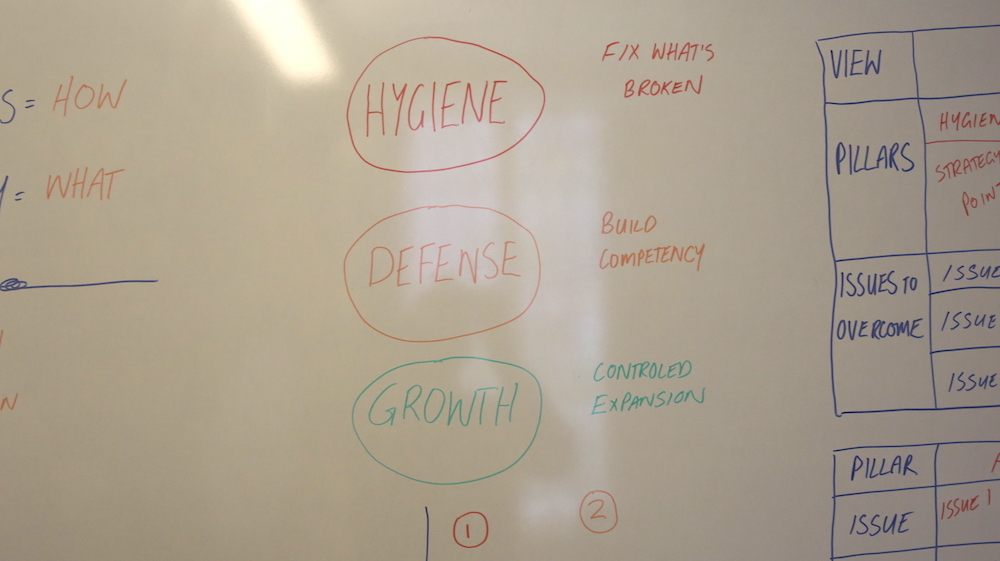 S = HOW
= WHAT
N
HYGIENE
FIX WHAT'S
BROKEN
DEFENSE
BUILD
COMPETENCY
GROWTH
CONTROLED
EXPANSION
1
2
VIEW
PILLARS
HYGIEN
STRATEGY
POINT
ISSUES TO
OVERCOME
ISSUE
ISSUE
ISSUE
PILLAR
ISSUE
ISSUE 1